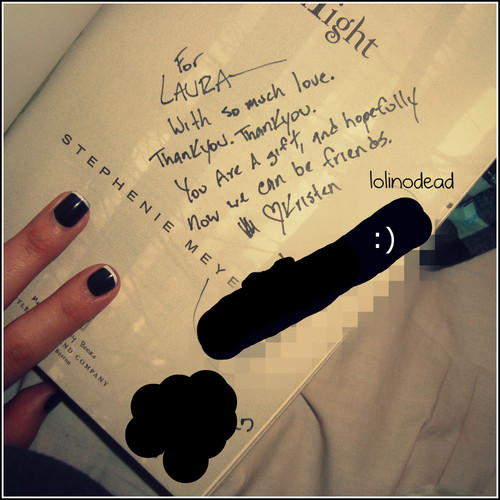 ight
For
LAURA
With so much love.
Thankyou. Thankyou.
You Are A gift, and hopefully
now we can be friends.
♡Kristen
lolinodead
:)
STEPHENIE MEYE
Books
AND COMPANY
Boston